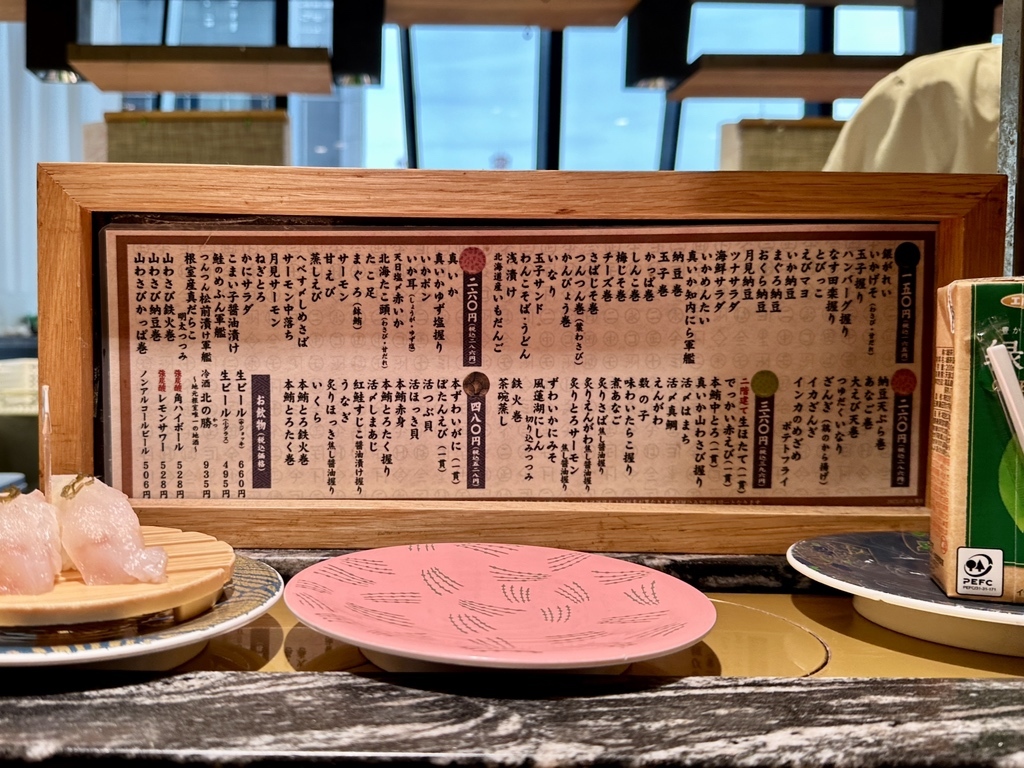 一五〇円（税込一六五円）
銀がれい
いかげそ（わさび・甘だれ）
玉子握り
ハンバーグ握り
なす田楽握り
とびっこ
えびマヨ
いか納豆
まぐろ納豆
おくら納豆
月見納豆
ツナサラダ
海鮮サラダ
いかめんたい
真いか知内にら軍艦
納豆巻
かっぱ巻
玉子巻
しんこ巻
梅じそ巻
チーズ巻
さばじそ巻
つんつん巻（葉わさび）
かんぴょう巻
いなり
玉子サンド
わんこそば・うどん
浅漬け
北海道産いもだんご
二六〇円（税込二八六円）
真いか
真いかゆず塩握り
いかポン
いか耳（しょうが・ゆず塩）
天日塩〆赤いか
北海たこ頭（わさび・甘だれ）
たこ足
まぐろ（鉢鮪）
サーモン
甘えび
蒸しえび
へべす〆しめさば
サーモン中落ち
月見サーモン
ねぎとろ
かにサラダ
こまい子醤油漬け
鮭のめふん軍艦
つんつん松前漬け軍艦
根室産真だらこ
明太つつみ
山わさび鉄火巻
山わさび納豆巻
山わさびかっぱ巻
二六〇円（税込二八六円）
納豆天ぷら巻
あなご巻
大えび天巻
つゆだくいなり
ざんぎ（鶏のから揚げ）
イカざんぎ
ポテトフライ
インカのめざめ
三六〇円（税込三九六円）
二階建て生ほたて（一貫）
でっかい赤えび（一貫）
本鮪中とろ（一貫）
真いか山わさび握り
活〆はまち
活〆真鯛
えんがわ
数の子
味わいたらこ握り
煮あなご握り
炙りさば焦し醤油握り
炙りえんがわ焦し醤油握り
炙りとろサーモン
焦し醤油握り
ずわいかにみそ
風蓮湖にしん
切り込みつつみ
鉄火巻
茶碗蒸し
四八〇円（税込五二八円）
本ずわいがに（一貫）
ぼたんえび（一貫）
活つぶ貝
活ほっき貝
本鮪赤身
本鮪とろたく握り
活〆しまあじ
紅鮭すじこ醤油漬け握り
うなぎ
炙りほっき焦し醤油握り
いくら
本鮪とろ鉄火巻
本鮪とろたく巻
お飲物（税込価格）
生ビール（中ジョッキ） 660円
生ビール（グラス） 495円
冷酒 北の勝 935円
～地元根室唯一の地酒～
強炭酸角ハイボール 528円
強炭酸レモンサワー 528円
ノンアルコールビール 506円
PEFC